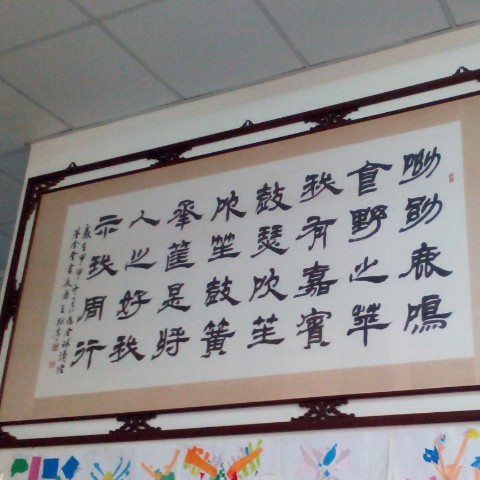 呦呦鹿鳴
食野之苹
我有嘉賓
鼓瑟吹笙
吹笙鼓簧
承筐是將
人之好我
示我周行